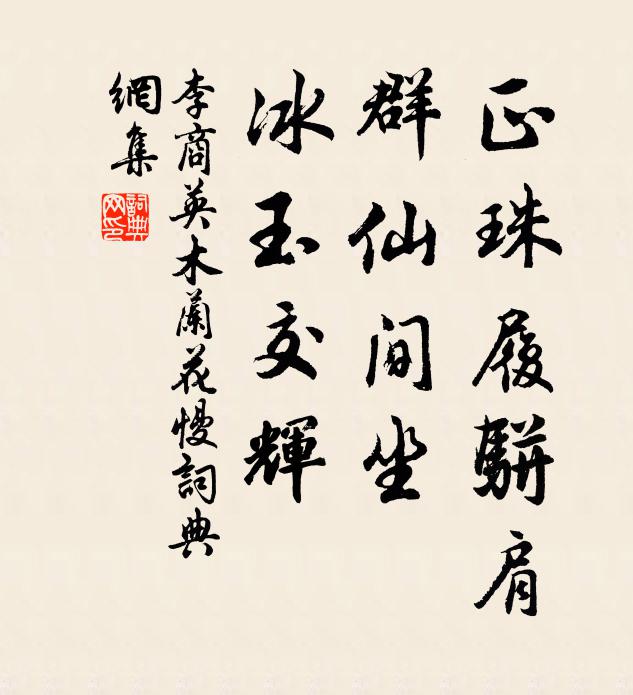 正珠履駢肩
群仙間坐
冰玉交輝
李商英木蘭花慢詞典
網集
詞典
网印